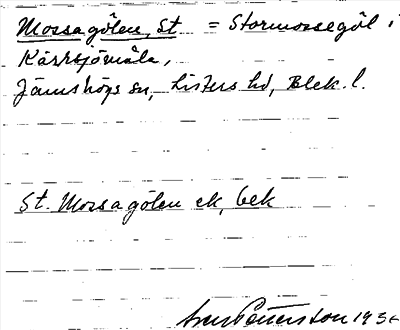 Mossagölen, St = Stormossegöl i
Kärrsjömåla,
Jämshögs sn, Listers hd, Blek. l.
St. Mossagölen ek, bek
Pettersson 193